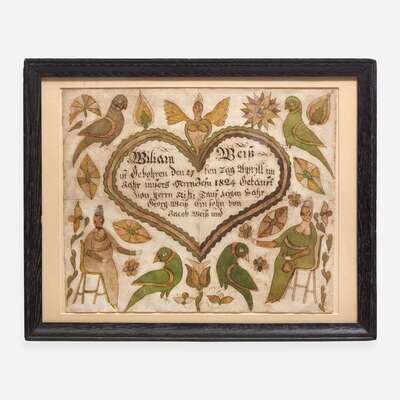 Wiliam Weiß
ist Gebohren den 27 ten Tag Aprill im
Jahr unsers Herrn Jesu 1824 Getauft
von Herrn
Georg Weiß Ein sohn von
Jacob Weiß und